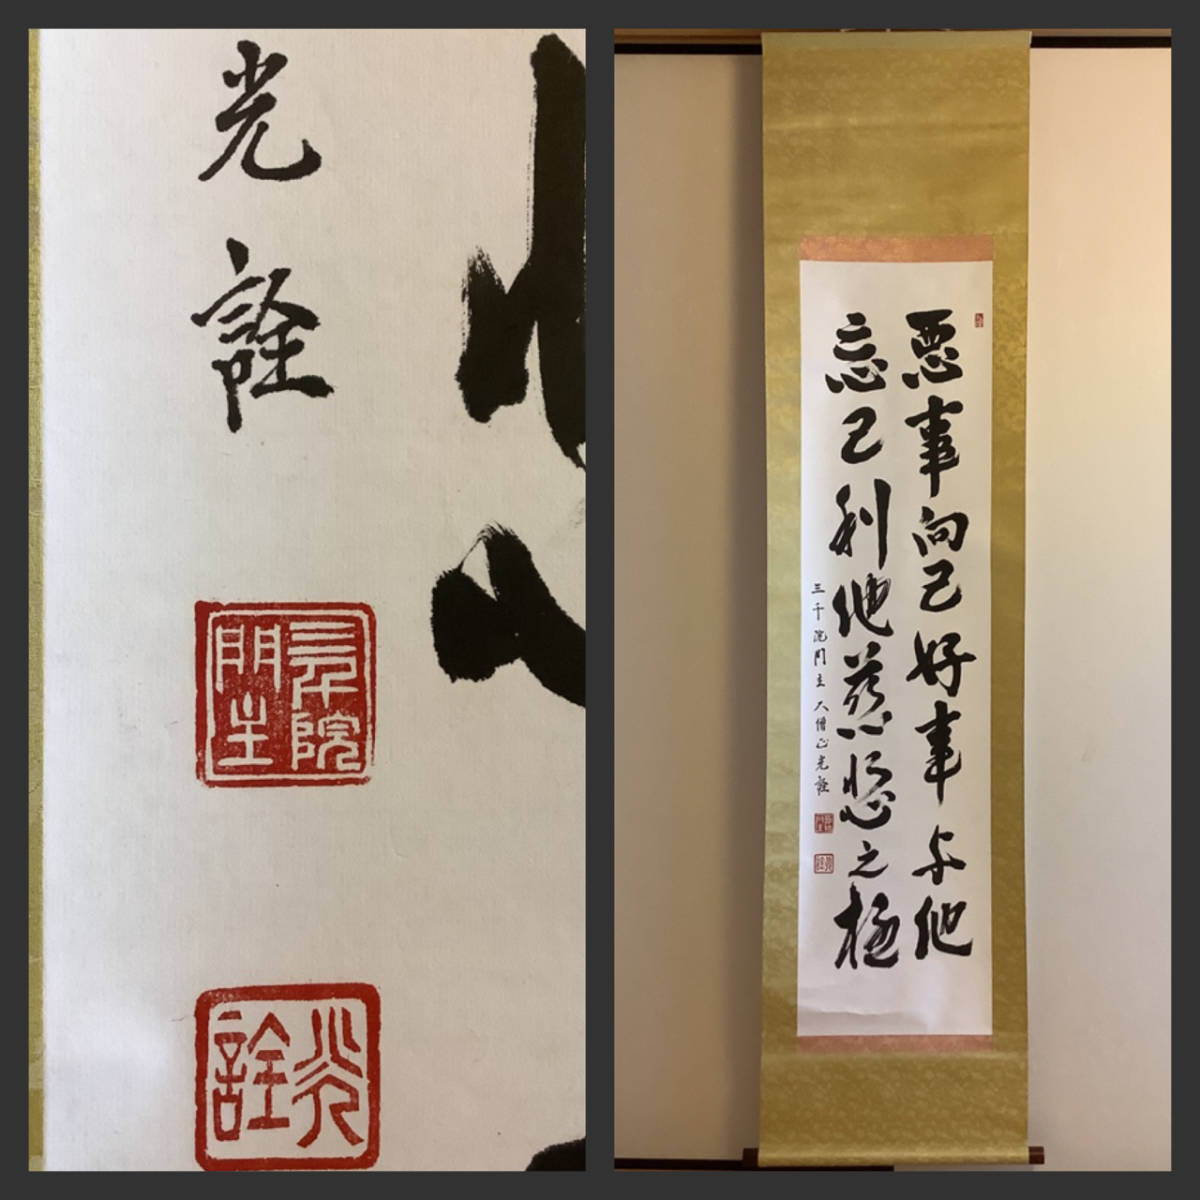 光詮
三千院
門主
光詮
悪事向己好事与他
忘己利他慈悲之極
三千院門主大僧正光詮
三千院
門主
光詮